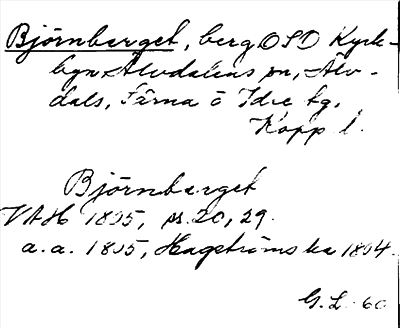 Björnberget, berg OSO Kyrk-
byn Älvdalens sn, Älv-
dals, Särna o Idre tg.
Kopp l.
Björnberget
VAH 1805, s. 20, 29.
a.a. 1805, Hagströms ka 1804.
G. L. 60